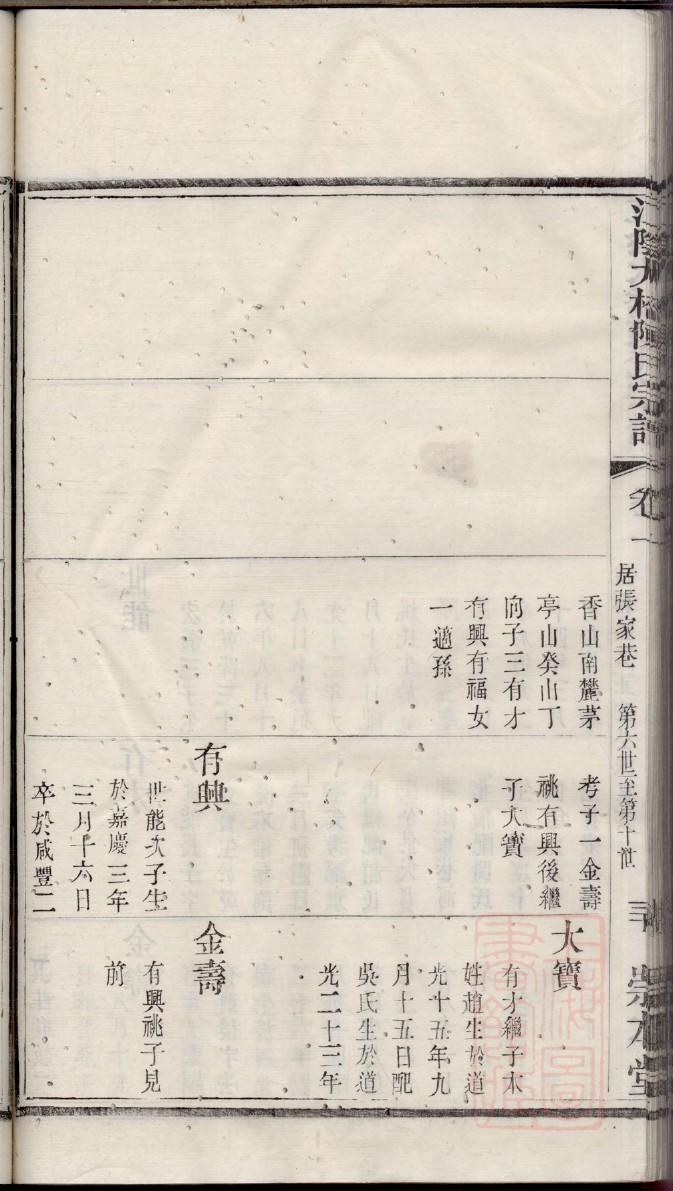 江陰九橋陳氏宗譜
卷一
居張家巷
第六世至第十世
崇本堂
香山南麓茅
亭山癸山丁
向子三有才
有興有福女
一適孫
考子一金壽
祧有興後繼
子大寶
有興
世能次子生
於嘉慶三年
三月十六日
卒於咸豐二
大寶
有才繼子本
姓趙生於道
光十五年九
月十五日配
吳氏生於道
光二十三年
金壽
有興祧子見
前